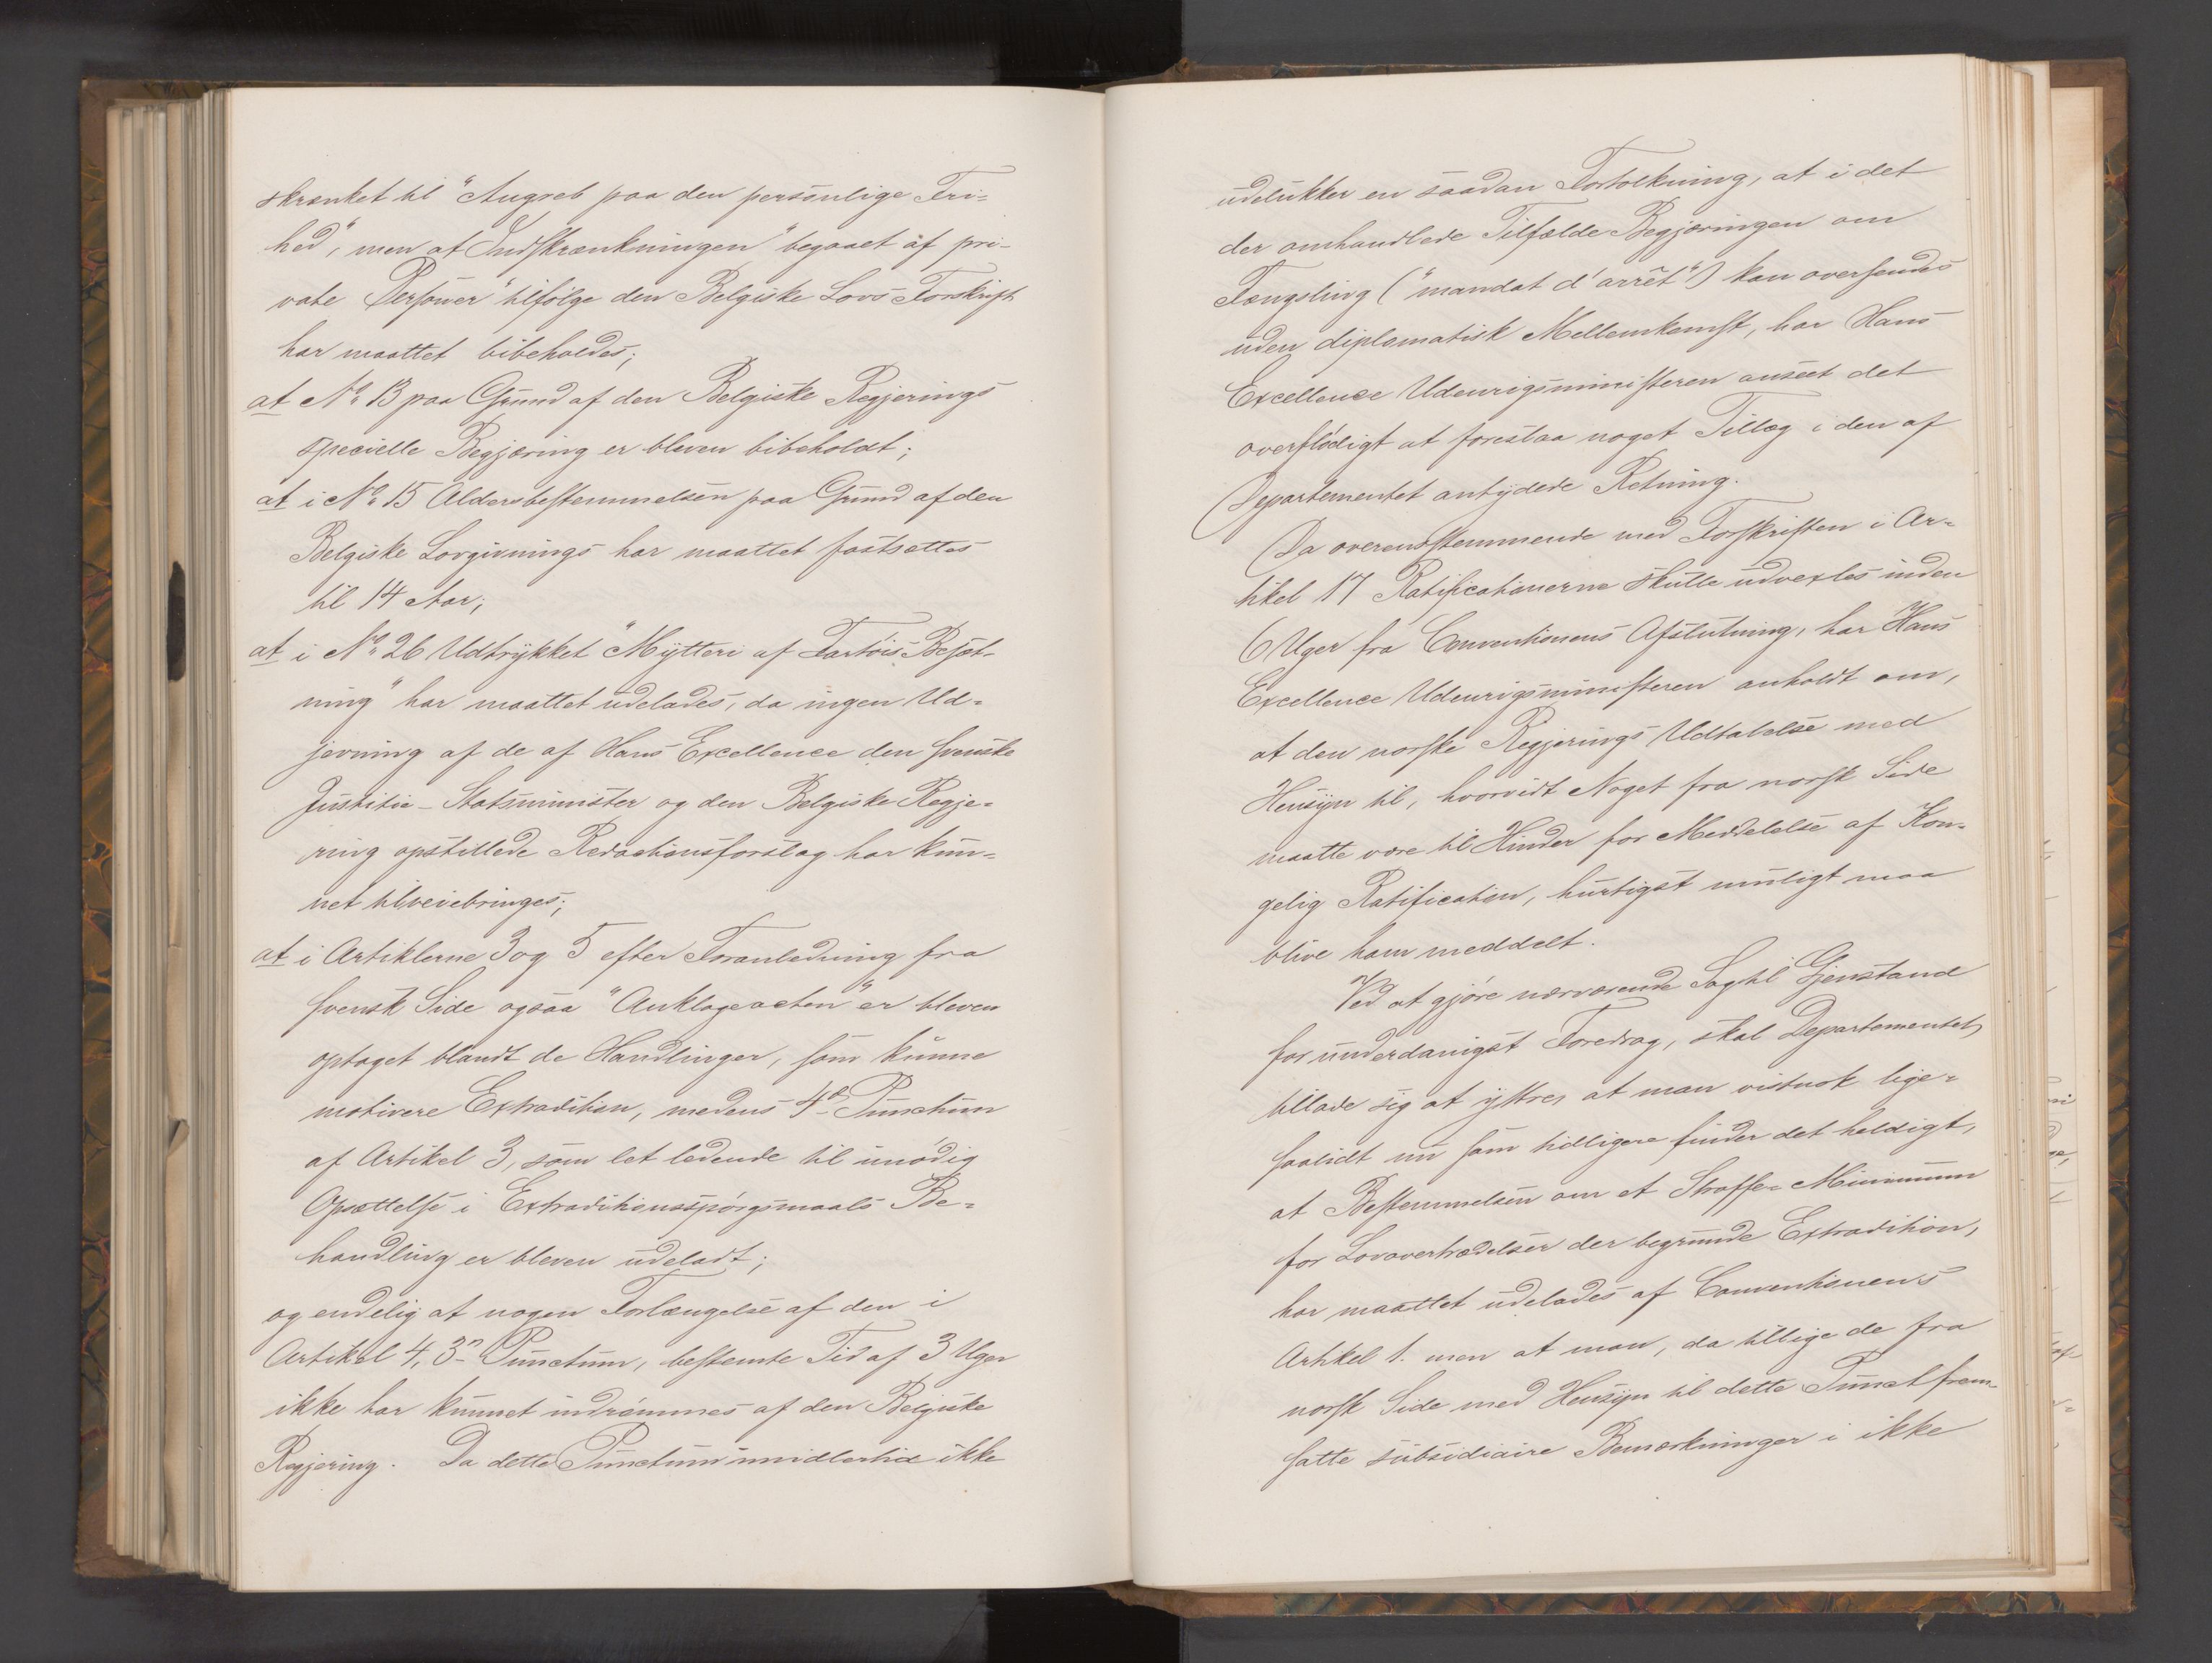 skrænket til "Angreb paa den personlige Fri-
hed", men at Indskrænkningen "begaaet af pri-
vate Personer" tilfølge den Belgiske Lovs Forskrift
har maattet bibeholdes;
at No 13 paa Grund af den Belgiske Regjerings
specielle Begjæring er bleven bibeholdt;
at i No 15 Aldersbestemmelsen paa Grund af den
Belgiske Lovgivnings har maattet fastsættes
til 14 Aar;
at i No 26 Udtrykket "Mytteri af Fartøis Besæt-
ning" har maattet udelades, da ingen Ud-
jevning af de af Hans Excellence den svenske
Justitie-Statsminister og den Belgiske Regje-
ring opstillede Redactionsforslag har kun-
net tilveiebringes;
at i Artiklerne 3 og 5 efter Foranledning fra
svensk Side ogsaa "Anklageacten" er bleven
optaget blandt de Handlinger, som kunne
motivere Extradition, medens 4de Punctum
af Artikel 3, som let ledende til unødig
Opsættelse i Extraditionsspørgsmaals Be-
handling er bleven udeladt;
og endelig at nogen Forlængelse af den i
Artikel 4, 3die Punctum, bestemte Tid af 3 Uger
ikke har kunnet indrømmes af den Belgiske
Regjering. Da dette Punctum imidlertid ikke
udelukker en saadan Fortolkning, at i det
der omhandlede Tilfælde Begjæringen om
Fængsling ("mandat d'arrêt") kan oversendes
uden diplomatisk Mellemkomst, har Hans
Excellence Udenrigsministeren anseet det
overflødigt at foreslaa noget Tillæg i den af
Departementet antydede Retning.
Da overensstemmende med Forskriften i Ar-
tikel 17 Ratificationerne skulle udvexles inden
6 Uger fra Conventionens Afslutning, har Hans
Excellence Udenrigsministeren anholdt om,
at den norske Regjerings Udtalelse med
Hensyn til, hvorvidt Noget fra norsk Side
maatte være til Hinder for Meddelelse af Kon-
gelig Ratification, hurtigst muligt maa
blive ham meddelt.
Ved at gjøre nærværende Sag til Gjenstand
for underdanigst Foredrag, skal Departementet
tillade sig at yttre, at man vistnok lige-
saalidt nu som tidligere finder det heldigt,
at Bestemmelsen om et Straffe-Minimum
for Lovovertrædelser der begrunde Extradition,
har maattet udelades af Conventionens
Artikel 1. men at man, da tillige de fra
norsk Side med Hensyn til dette Punct frem-
satte subsidiaire Bemærkninger i ikke